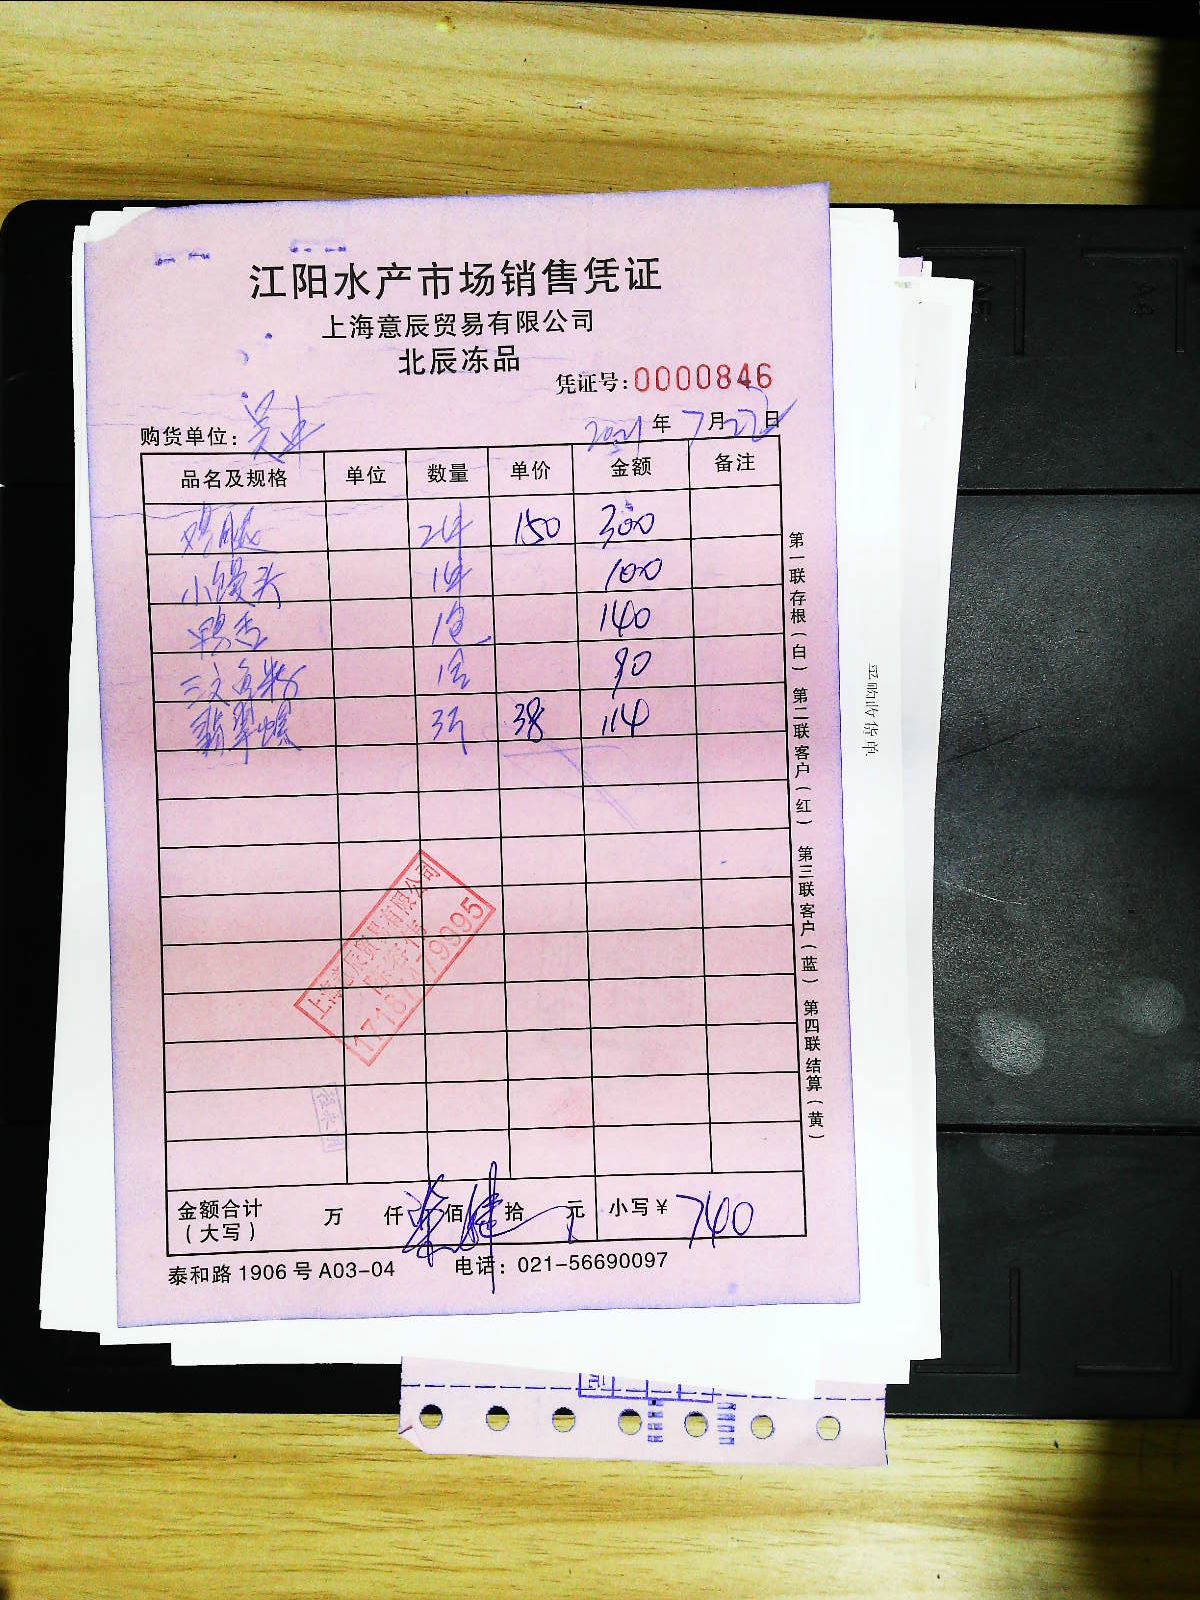 江阳水产市场销售凭证
上海意辰贸易有限公司
北辰冻品
凭证号:0000846
购货单位: 2021年7月22日
品名及规格 单位 数量 单价 金额 备注
鸡腿 2件 150 300
小馒头 1件 100
鸭舌 1包 140
三文鱼籽 1盒 90
翡翠螺 3斤 38 114
上海意辰贸易有限公司
金额合计 万 仟 佰 拾 元 小写¥ 740
(大写)
泰和路1906号A03-04 电话: 021-56690097
第一联存根(白) 第二联客户(红) 第三联客户(蓝) 第四联结算(黄)
采购收货单